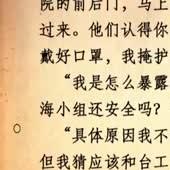 院的前后门，马上
过来。他们认得你
戴好口罩，我掩护
“我是怎么暴露
海小组还安全吗？
“具体原因我不
但我猜应该和台工